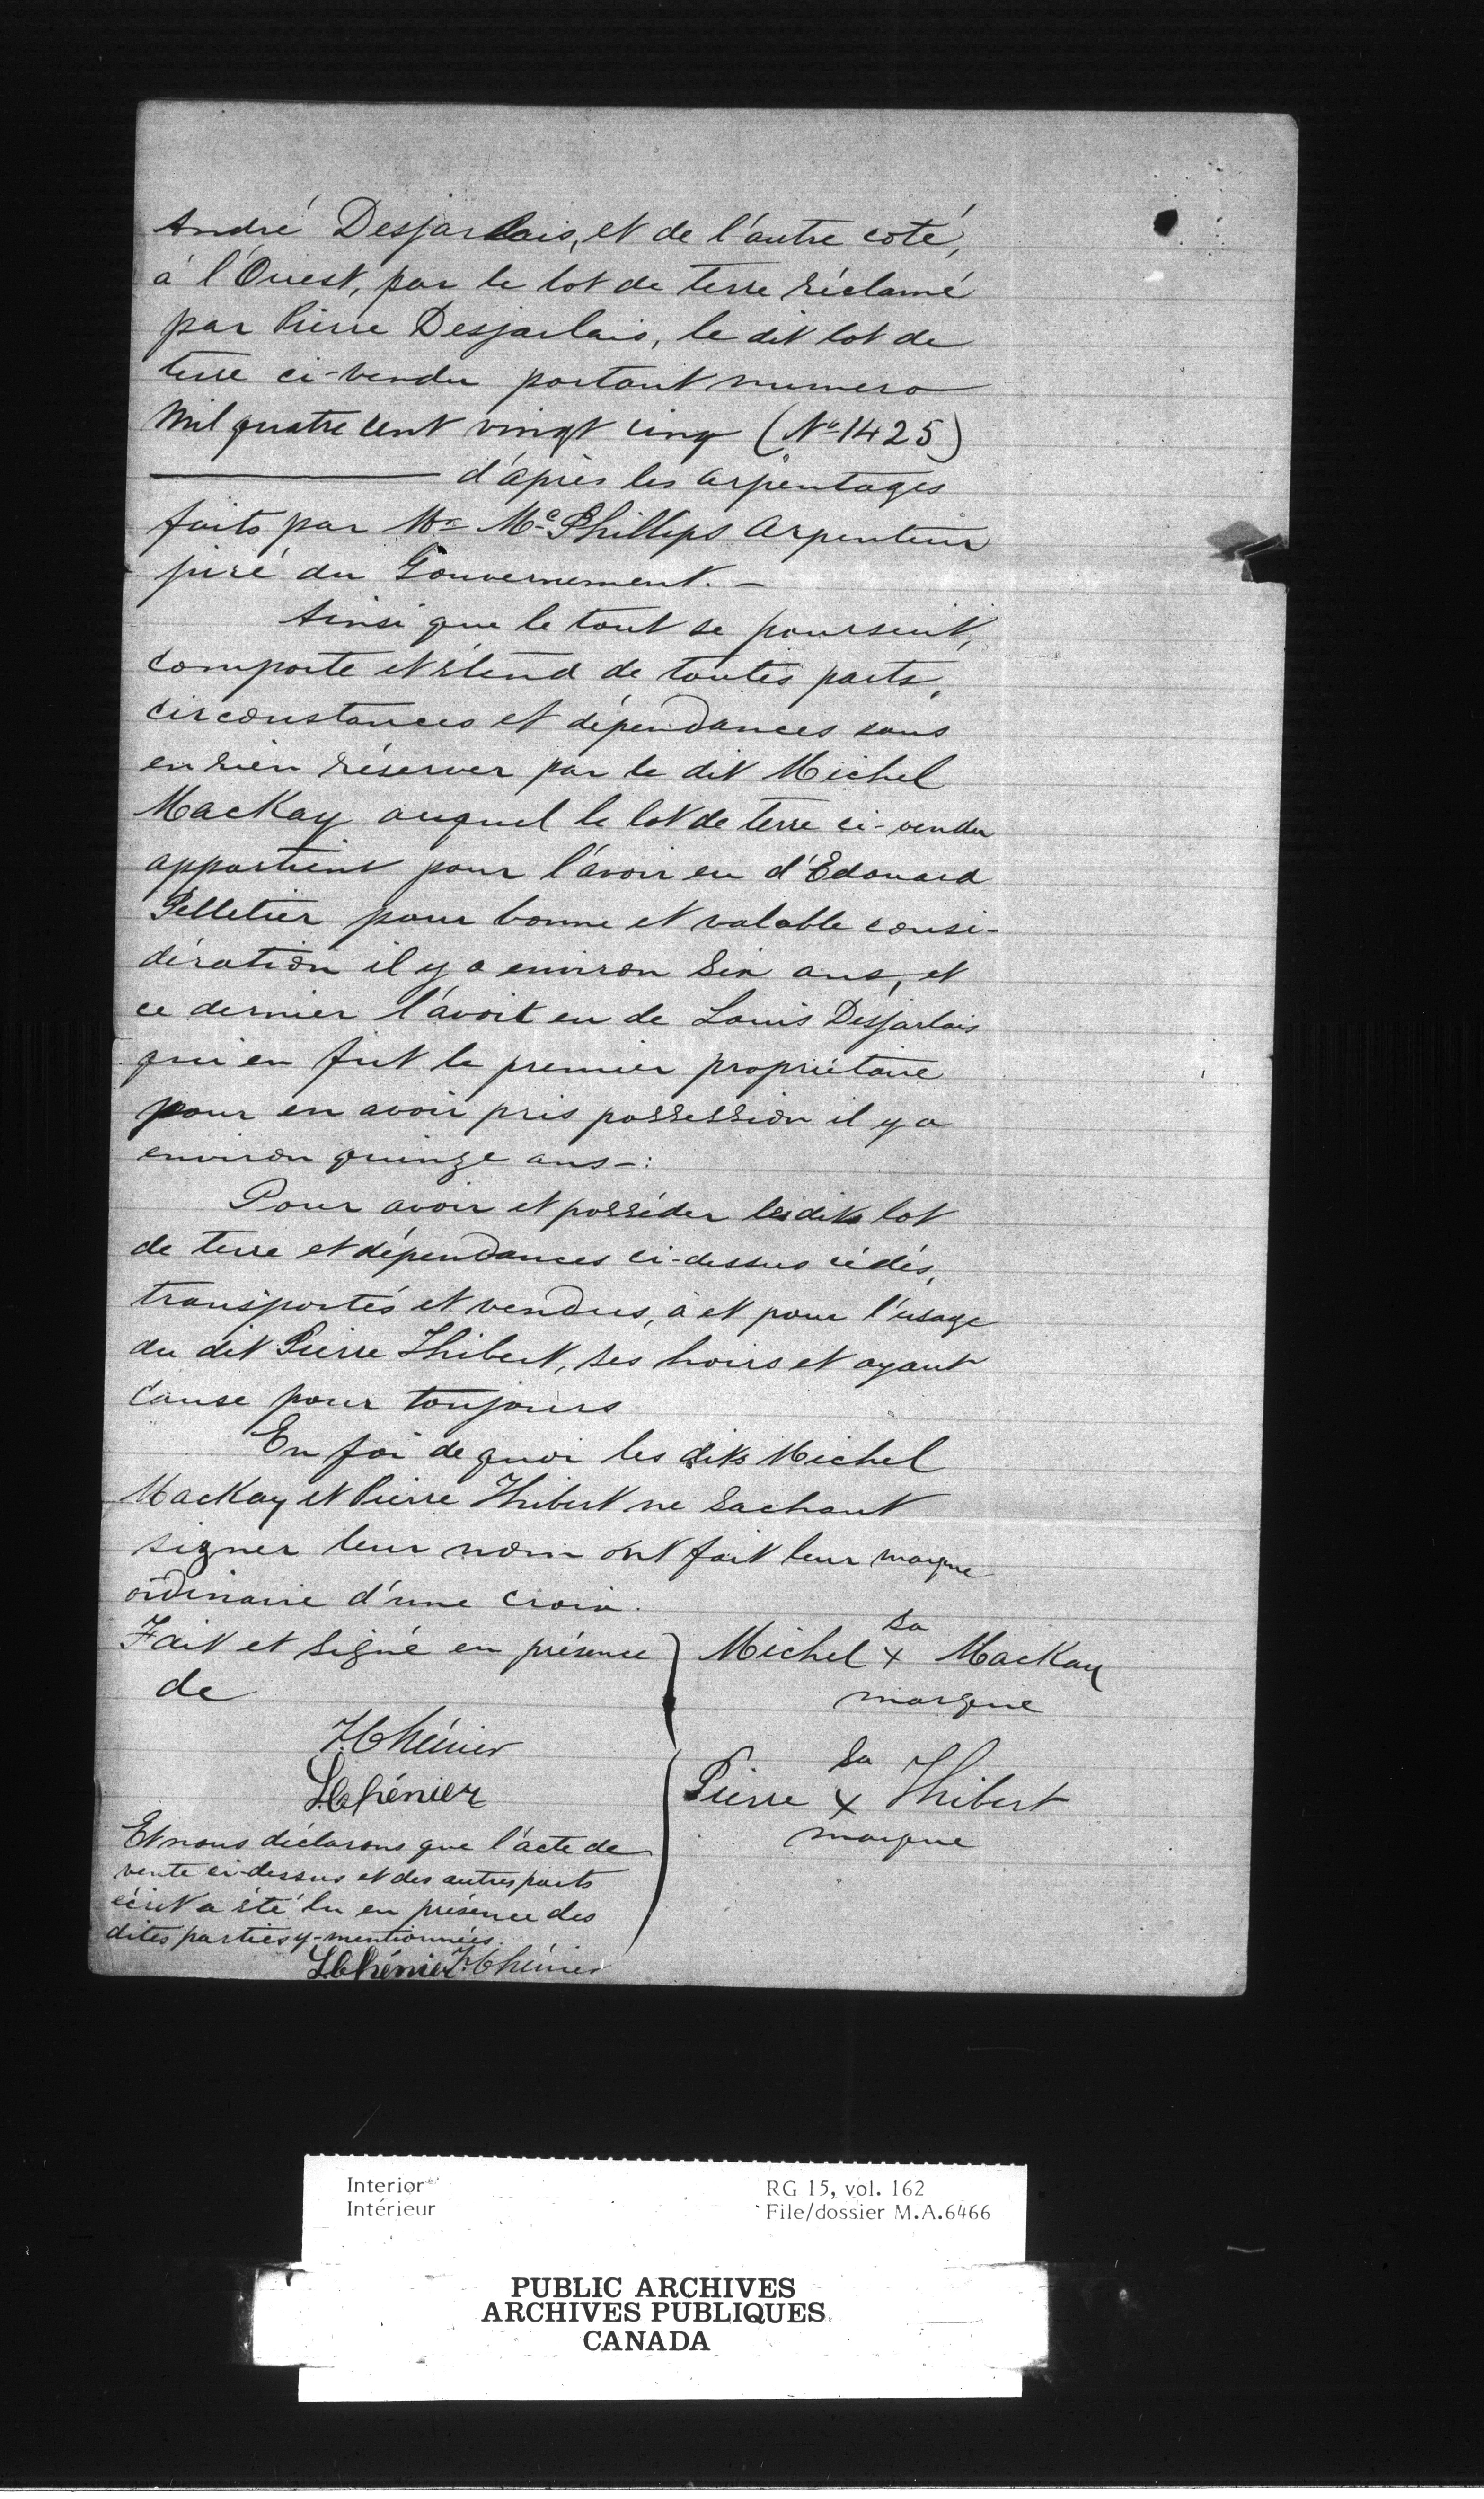 André Desjarlais, et de l'autre coté,
à l'Ouest, par le lot de terre réclamé
par Pierre Desjarlais, le dit lot de
terre ci-vendu portant numero
Mil quatre cent vingt cinq (No 1425)
d'après les arpentages
faits par Mr McPhillips Arpenteur
juré du Gouvernement. —
Ainsi que le tout se poursuit,
comporte et s'étend de toutes parts,
circonstances et dépendances sans
en rien réserver par le dit Michel
MacKay auquel le lot de terre ci-vendu
appartient pour l'avoir eu d'Edouard
Pelletier pour bonne et valable consi-
dération il y a environ Six ans, et
ce dernier l'avoit eu de Louis Desjarlais
qui en fut le premier propriétaire
pour en avoir pris possession il y a
environ quinze ans —:
Pour avoir et posséder lesdits lot
de terre et dépendances ci-dessus cédés,
transportés et vendus, à et pour l'usage
du dit Pierre Thibert, ses hoirs et ayant
cause pour toujours
En foi de quoi les dits Michel
MacKay et Pierre Thibert ne Sachant
signer leur nom ont fait leur marque
ordinaire d'une croix.
Fait et Signé en présence
de
sa
Michel x MacKay
marque
Chénier
Chénier
sa
Pierre x Thibert
marque
Et nous déclarons que l'acte de
vente ci-dessus et des autres parts
écrit a été lu en présence des
dites parties y-mentionnées.
Chénier Chénier
Interior
Intérieur
RG 15, vol. 162
File/dossier M.A.6466
PUBLIC ARCHIVES
ARCHIVES PUBLIQUES
CANADA